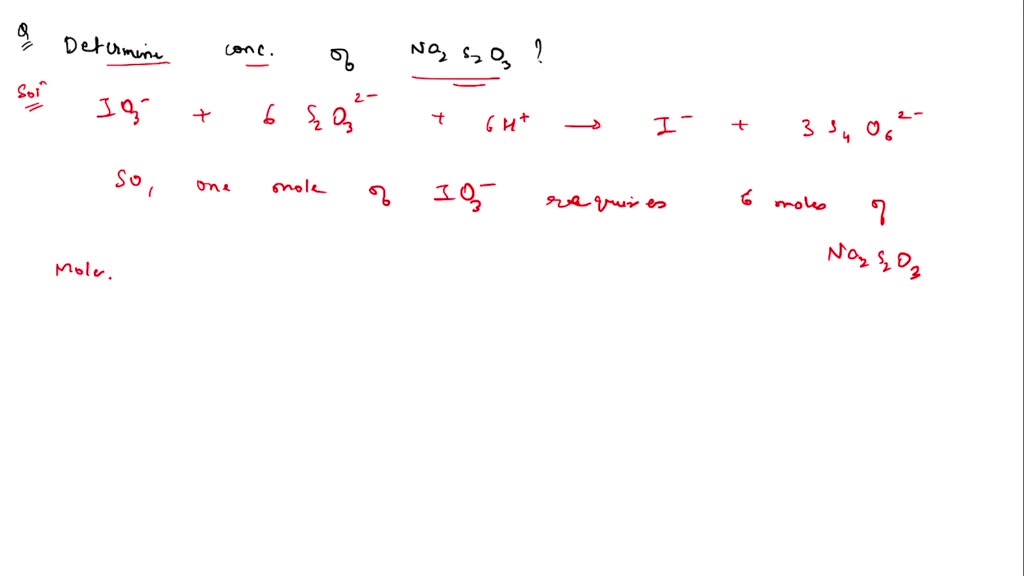 Q Determine conc. of Na2 S2O3 ?
Solⁿ IO3⁻ + 6 S2O3²⁻ + 6H⁺ → I⁻ + 3 S4O6²⁻
So, one mole of IO3⁻ requires 6 moles of
Na2S2O3
Mole.